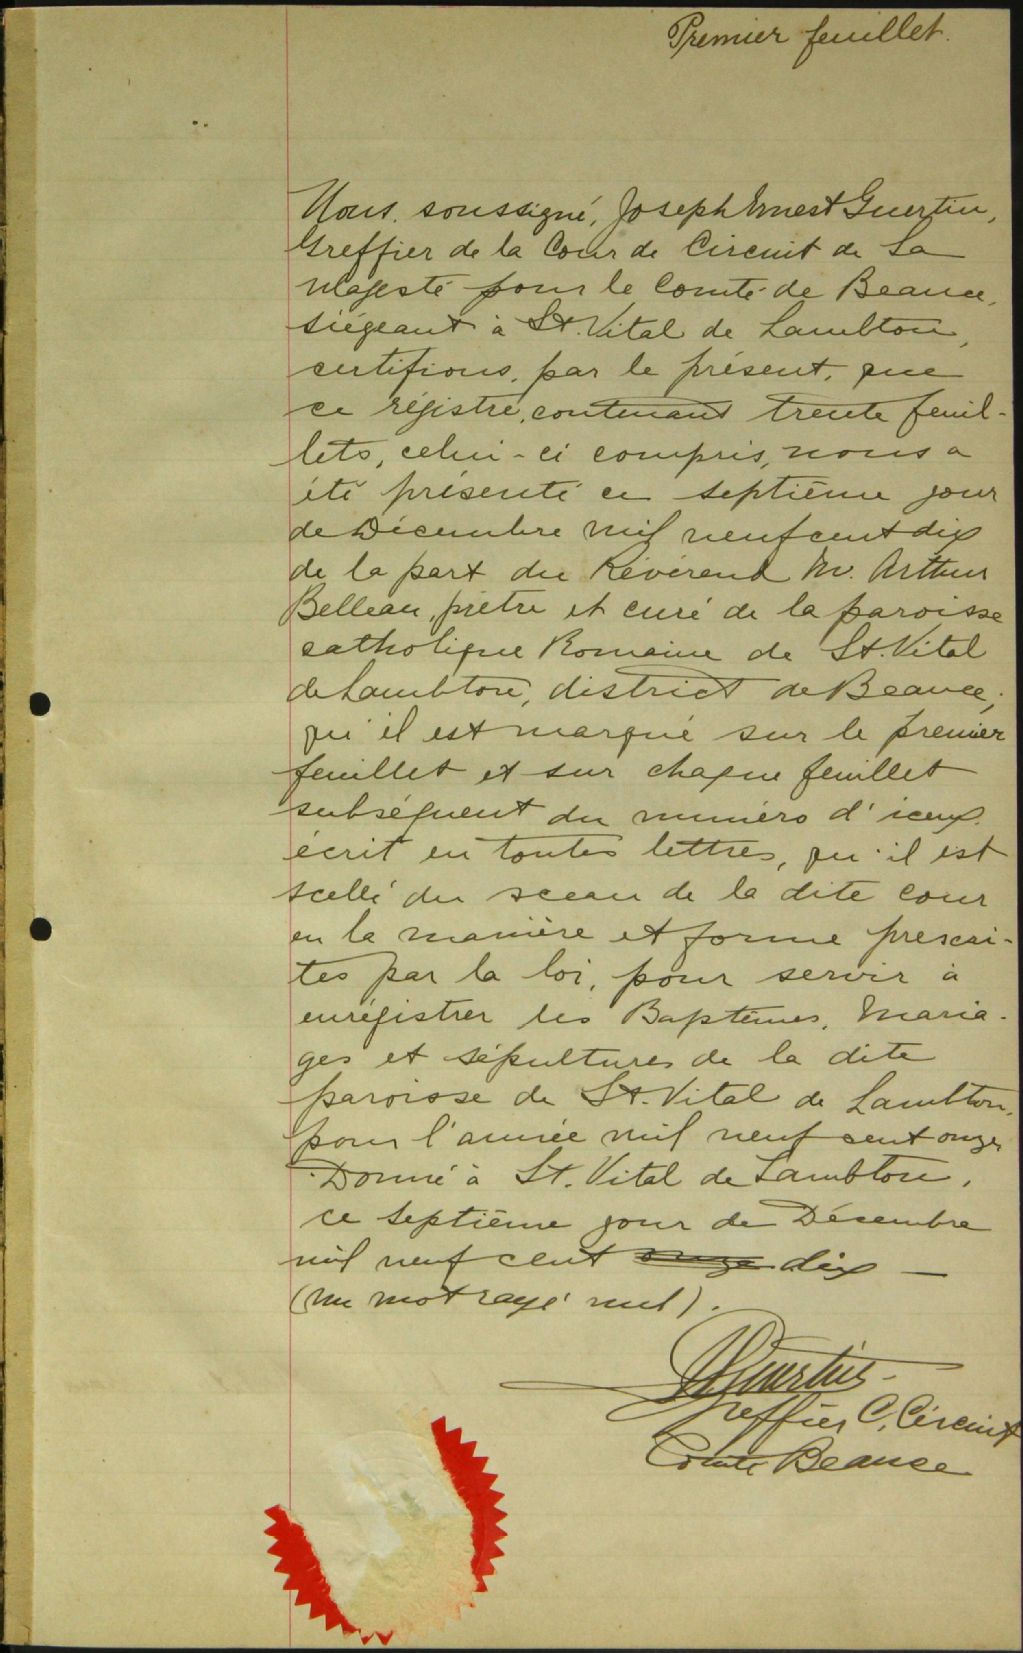 Premier feuillet.
Nous, soussigné, Joseph Ernest Guertin,
Greffier de la Cour de Circuit de Sa
Majesté pour le Comté de Beauce,
siégeant à St. Vital de Lambton,
certifions, par le présent, que
ce régistre, contenant trente feuil-
lets, celui-ci compris, nous a
été présenté ce septième jour
de Décembre mil neuf cent dix
de la part du Révérend M. Arthur
Belleau, prêtre et curé de la paroisse
catholique Romaine de St. Vital
de Lambton, district de Beauce;
qu'il est marqué sur le premier
feuillet et sur chaque feuillet
subséquent du numéro d'iceux
écrit en toutes lettres, qu'il est
scellé du sceau de la dite cour
en la manière et forme prescri-
tes par la loi, pour servir à
enrégistrer les Baptêmes, Maria-
ges et sépultures de la dite
paroisse de St. Vital de Lambton,
pour l'année mil neuf cent onze.
Donné à St. Vital de Lambton,
ce septième jour de Décembre
mil neuf cent onze dix —
(un mot rayé nul).
Guertin
Greffier C. Circuit
Comté Beauce